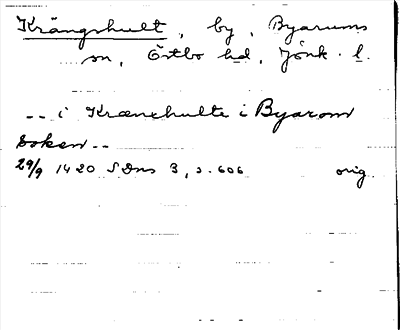 Krängshult, by, Byarums
sn, Östbo hd, Jönk. l.
-- i Krænehulte i Byarom
soken --
29/9 1420 SDns 3, s. 606 orig.